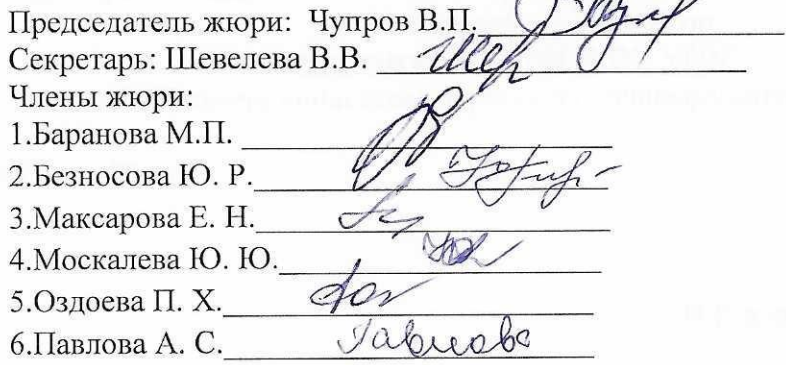 Председатель жюри: Чупров В.П.
Секретарь: Шевелева В.В.
Члены жюри:
1.Баранова М.П.
2.Безносова Ю. Р.
3.Максарова Е. Н.
4.Москалева Ю. Ю.
5.Оздоева П. Х.
6.Павлова А. С. Павлова